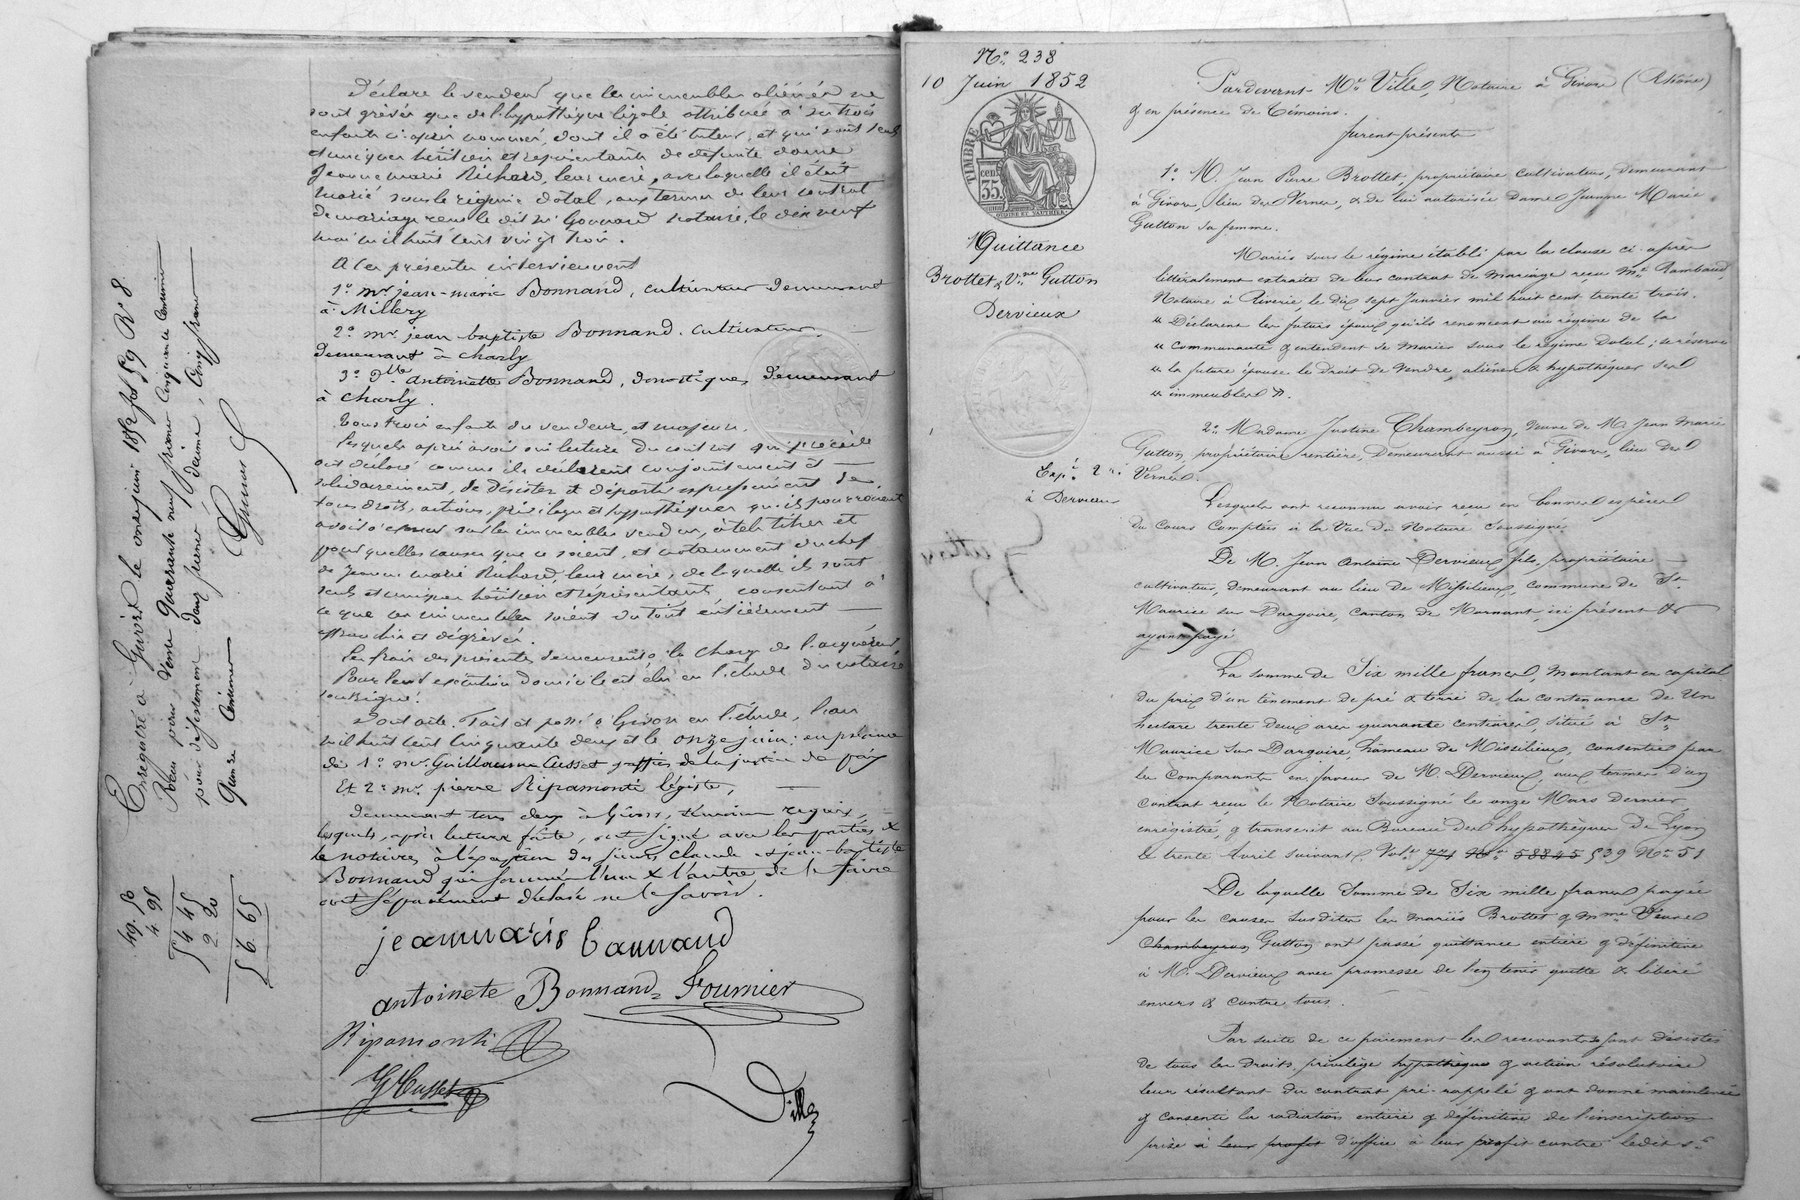 Déclare le vendeur que les immeubles aliénés ne
sont grévés que de l'hypothèque légale attribuée à ses trois
enfants ci après nommés, dont il a été tuteur, et qui sont seuls
et uniques héritiers et représentants de défunte dame
Jeanne marie Richard, leur mère, avec laquelle il était
marié sous le régime dotal, aux termes de leur contrat
de mariage reçu le dit Me Gonnard notaire, le dix neuf
mai mil huit cent vingt trois.
A ces présentes interviennent
1o. mr. jean-marie Bonnand, cultivateur demeurant
à Millery
2o. mr. jean baptiste Bonnand. cultivateur
demeurant à charly
3o. Dlle. antoinette Bonnand, domestique, demeurant
à charly.
Tous trois enfants du vendeur, et majeurs.
Lesquels après avoir oui lecture du contrat qui précède
ont déclaré comme ils déclarent conjointement et
solidairement, se désister et départir expressément de
tous droits, actions, privilèges et hypothèques qu'ils pourraient
avoir à exercer sur les immeubles vendus, à tels titres et
pour quelles causes que ce soient, et notamment du chef
de Jeanne marie Richard, leur mère, de laquelle ils sont
seuls et uniques héritiers et représentants, consentant à
ce que ces immeubles soient du tout entièrement
affranchis et dégrevés.
Les frais des présentes demeurent à la charge de l'acquéreur
Pour leur exécution domicile est élu en l'étude du notaire
soussigné.
Dont acte. Fait et passé à Givors en l'étude, l'an
mil huit cent cinquante deux et le onze juin; en présence
de 1o. mr. Guillaume Cusset greffier de la justice de paix
Et 2o mr. pierre Ripamonti légiste,
demeurant tous deux à Givors, témoins requis,
lesquels, après lecture faite, ont signé avec les parties &
le notaire, à l'exception des sieurs claude et jean-baptiste
Bonnand qui sommés l'un & l'autre de le faire
ont séparément déclaré ne le savoir.
jeanmaris bannand
antoinete Bonnand Fournier
Ripamonti
GCusset
Ville
Enregistré à Givors le onze juin 1852 fol 59 Ro 8
Reçu pour vente quarante neuf francs cinquante centimes
pour désistement deux francs, décime, cinq francs
quinze centimes
49. 50
4. 95
54 45
2. 20
56. 65
No. 238
10 Juin 1852
TIMBRE
35 cen.
Quittance
Brottet & Vve Gutton
à
Dervieux
Expé. 2 ré
à Dervieux
Pardevant Me Ville, Notaire à Givors (Rhône)
& en présence de Témoins.
furent présents
1o. M. Jean Pierre Brottet propriétaire cultivateur, demeurant
à Givors, lieu du Vernes, & de lui autorisée dame Jeanne Marie
Gutton sa femme.
Mariés sous le régime établi par la clause ci-après
littéralement extraite de leur contrat de mariage reçu Me. Rambaud
Notaire à Riverie, le dix sept Janvier mil huit cent trente trois.
" Déclarent les futurs époux qu'ils renoncent au régime de la
" communauté & entendent se marier sous le régime dotal; se réserve
" la future épouse le droit de vendre, aliéner & hypothéquer ses
" immeubles ".
2o. Madame Justine Chambeyron, veuve de M. Jean Marie
Gutton, propriétaire rentière, demeurant aussi à Givors, lieu des
Vernes.
Lesquels ont reconnu avoir reçu en bonnes espèces
du cours comptées à la vue du Notaire soussigné
De M. Jean Antoine Dervieux fils, propriétaire
cultivateur, demeurant au lieu de Missilieux, commune de St.
Maurice sur Dargoire, canton de Mornant, ici présent &
ayant payé
La somme de Six mille francs, montant en capital
du prix d'un tènement de pré & terre de la contenance de un
hectare trente deux ares quarante centiares, situé à St.
Maurice sur Dargoire, hameau de Missilieux, consentie par
les comparants en faveur de M. Dervieux, aux termes d'un
contrat reçu le Notaire soussigné le onze Mars dernier
enregistré, & transcrit au Bureau des hypothèques de Lyon
le trente Avril suivant, Vol. 771 No. 58845 529 No. 51
De laquelle somme de Six mille francs payée
pour les causes susdites les mariés Brottet & Mme Veuve
Chambeyron Gutton ont passé quittance entière & définitive
à M. Dervieux avec promesse de l'en tenir quitte & libéré
envers & contre tous.
Par suite de ce paiement les recevants se sont désistés
de tous les droits, privilège hypothèque & action résolutoire
leur résultant du contrat pré-rappelé & ont donné mainlevée
& consenti la radiation entière & définitive de l'inscription
prise à leur profit d'office à leur profit contre ledit sr.